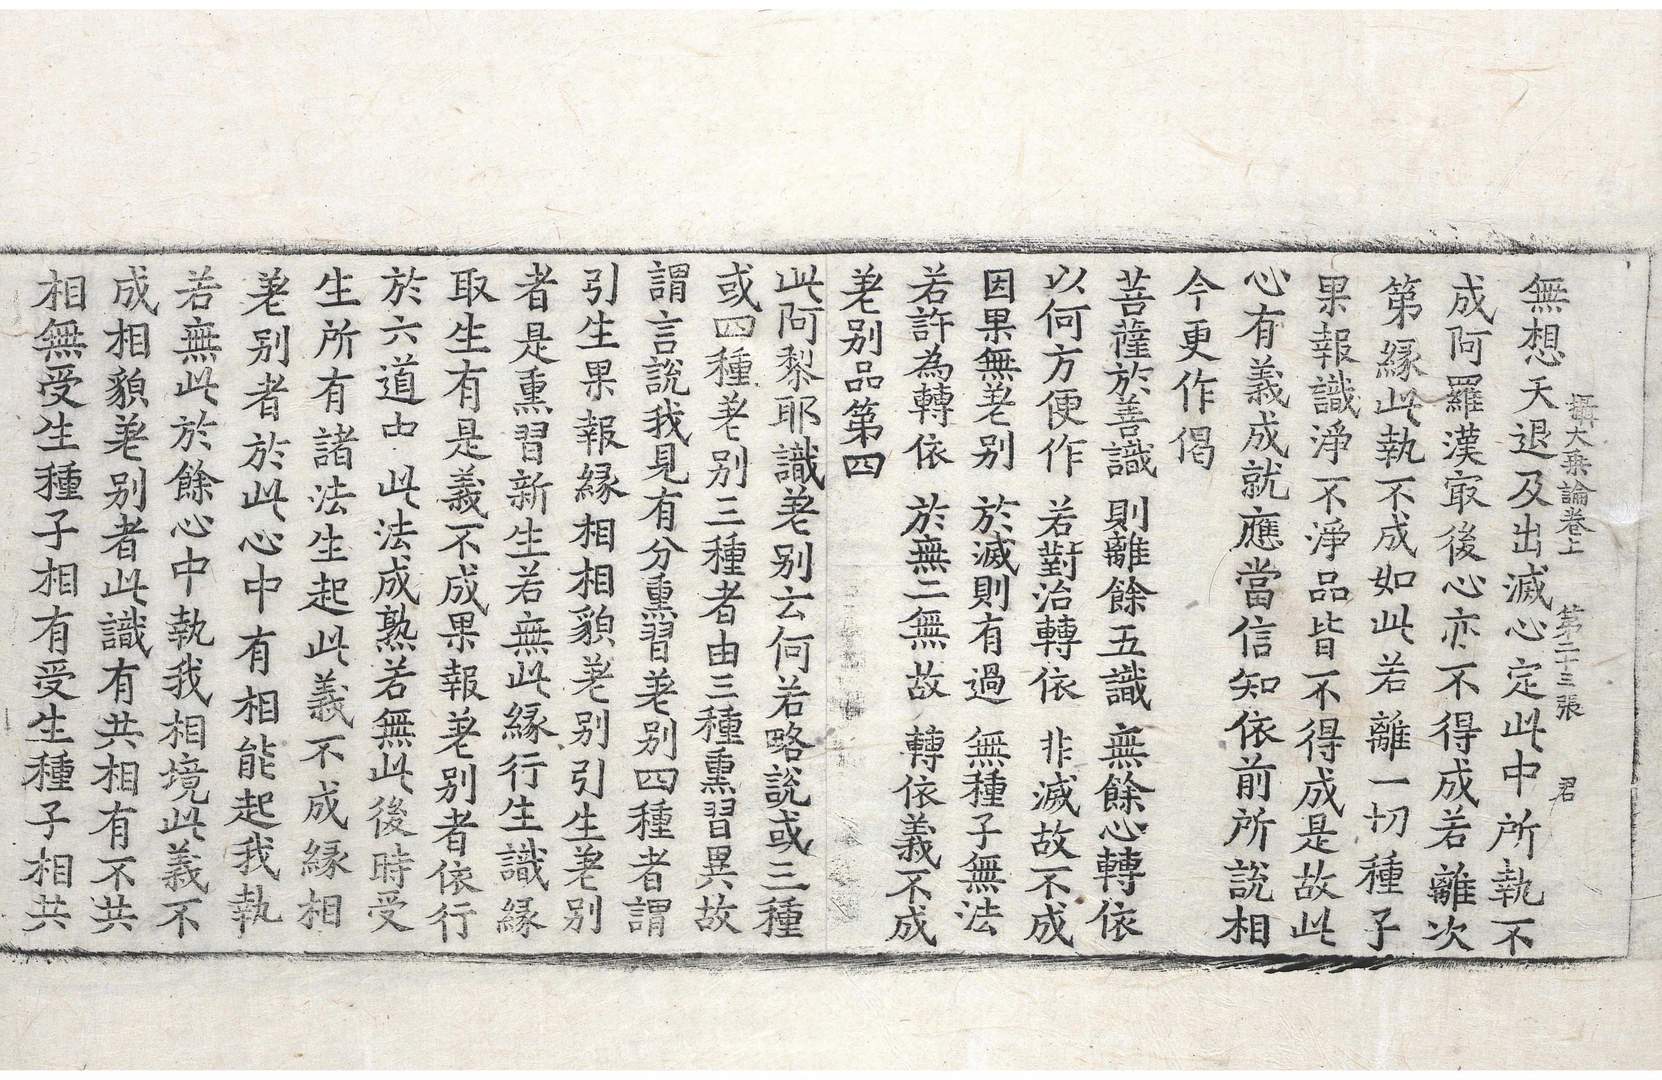 攝大乗論卷上　第二十三張　君
無想天退及出滅心定此中所執不
成阿羅漢冣後心亦不得成若離次
第縁此執不成如此若離一切種子
果報識淨不淨品皆不得成是故此
心有義成就應當信知依前所說相
今更作偈
菩薩於善識　則離餘五識　無餘心轉依
以何方便作　若對治轉依　非滅故不成
因果無差别　於滅則有過　無種子無法
若許為轉依　於無二無故　轉依義不成
差别品第四
此阿黎耶識差别云何若略說或三種
或四種差别三種者由三種熏習異故
謂言說我見有分熏習差别四種者謂
引生果報縁相相貌差别引生差别
者是熏習新生若無此縁行生識縁
取生有是義不成果報差别者依行
於六道中此法成熟若無此後時受
生所有諸法生起此義不成縁相
差别者於此心中有相能起我執
若無此於餘心中執我相境此義不
成相貌差别者此識有共相有不共
相無受生種子相有受生種子相共